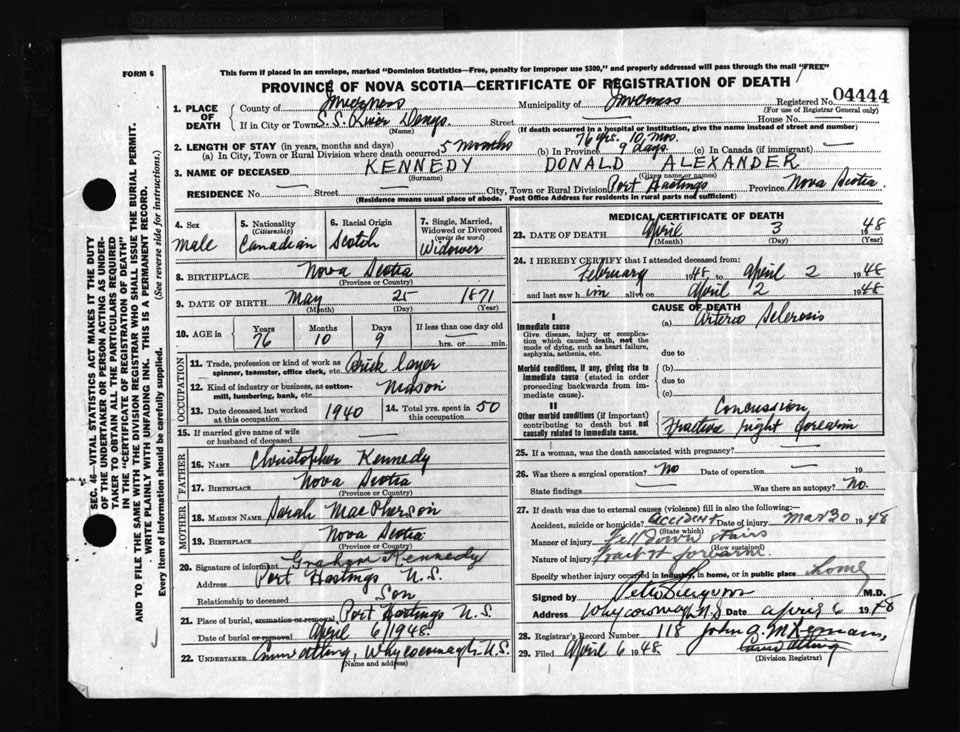 FORM 6
This form if placed in an envelope, marked "Dominion Statistics—Free, penalty for improper use $300," and properly addressed will pass through the mail "FREE"
PROVINCE OF NOVA SCOTIA—CERTIFICATE OF REGISTRATION OF DEATH
1. PLACE OF DEATH County of Inverness Municipality of Inverness Registered No. 04444
(For use of Registrar General only)
If in City or Town S.S. River Denys Street — House No. —
(Name) (If death occurred in a hospital or institution, give the name instead of street and number)
2. LENGTH OF STAY (in years, months and days) 76 yrs. 10 mos.
(a) In City, Town or Rural Division where death occurred 5 months (b) In Province 9 days. (c) In Canada (if immigrant) —
3. NAME OF DECEASED KENNEDY DONALD ALEXANDER
(Surname) (Given name or names)
RESIDENCE No. — Street — City, Town or Rural Division Port Hastings Province Nova Scotia
(Residence means usual place of abode. Post Office Address for residents in rural parts not sufficient)
4. Sex male
5. Nationality (Citizenship) Canadian
6. Racial Origin Scotch
7. Single, Married, Widowed or Divorced (write the word) Widower
8. BIRTHPLACE Nova Scotia
(Province or Country)
9. DATE OF BIRTH May 25 1871
(Month) (Day) (Year)
10. AGE in Years 76 Months 10 Days 9 If less than one day old hrs. or min.
OCCUPATION
11. Trade, profession or kind of work as spinner, teamster, office clerk, etc. Brick layer
12. Kind of industry or business, as cotton-mill, lumbering, bank, etc. Mason
13. Date deceased last worked at this occupation 1940 14. Total yrs. spent in this occupation 50
15. If married give name of wife or husband of deceased —
FATHER
16. NAME Christopher Kennedy
17. BIRTHPLACE Nova Scotia
(Province or Country)
MOTHER
18. MAIDEN NAME Sarah MacPherson
19. BIRTHPLACE Nova Scotia
(Province or Country)
20. Signature of informant Graham Kennedy
Address Port Hastings N.S.
Relationship to deceased Son
21. Place of burial, cremation or removal Port Hastings N.S.
Date of burial or removal April 6 1948
22. UNDERTAKER Whycocomagh N.S.
(Name and address)
MEDICAL CERTIFICATE OF DEATH
23. DATE OF DEATH April 3 1948
(Month) (Day) (Year)
24. I HEREBY CERTIFY that I attended deceased from:
February 1948 to April 2 1948
and last saw him alive on April 2 1948
CAUSE OF DEATH
I
Immediate cause
Give disease, injury or complication which caused death, not the mode of dying, such as heart failure, asphyxia, asthenia, etc.
(a) Arterio Sclerosis
due to
Morbid conditions, if any, giving rise to immediate cause (stated in order proceeding backwards from immediate cause).
(b)
due to
(c)
II
Other morbid conditions (if important) contributing to death but not causally related to immediate cause.
Concussion
Fracture right forearm
25. If a woman, was the death associated with pregnancy? —
26. Was there a surgical operation? No Date of operation — 19
State findings — Was there an autopsy? No.
27. If death was due to external causes (violence) fill in also the following:—
Accident, suicide or homicide? ACCIDENT Date of injury Mar 30 1948
(State which)
Manner of injury Fell down stairs
(How sustained)
Nature of injury Fract rt forearm.
Specify whether injury occurred in industry, in home, or in public place home
Signed by M.D.
Address Whycocomagh N.S. Date April 6 1948
28. Registrar's Record Number 118
29. Filed April 6 1948
(Division Registrar)
SEC. 46—VITAL STATISTICS ACT MAKES IT THE DUTY
OF THE UNDERTAKER OR PERSON ACTING AS UNDER-
TAKER TO OBTAIN ALL THE PARTICULARS REQUIRED
IN THE "CERTIFICATE OF REGISTRATION OF DEATH"
AND TO FILE THE SAME WITH THE DIVISION REGISTRAR WHO SHALL ISSUE THE BURIAL PERMIT.
WRITE PLAINLY WITH UNFADING INK. THIS IS A PERMANENT RECORD.
Every item of information should be carefully supplied. (See reverse side for instructions.)